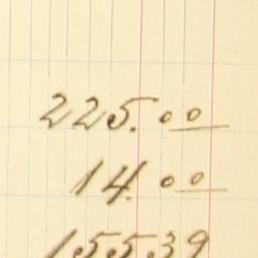 225.00
14.00
155.39